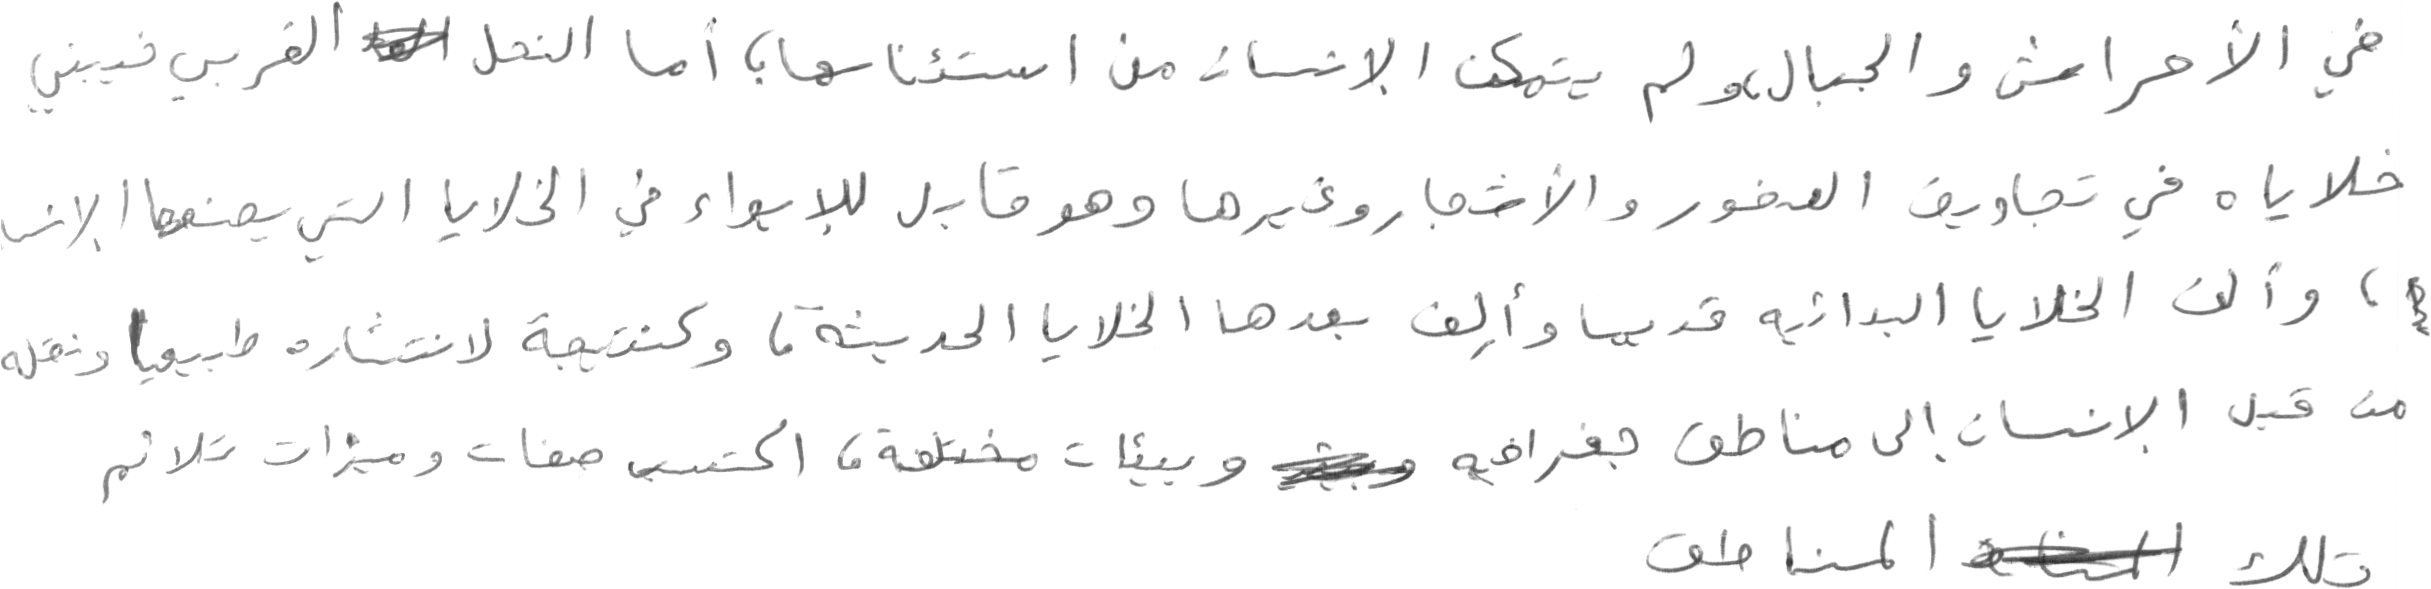 في الأحراش والجبال، ولم يتمكن الإنسان من استئناسها، أما النحل الغربي فيبني
خلاياه في تجاويف الصخور والأشجار وغيرها وهو قابل للإيواء في الخلايا التي يصنعها الإنسا
ن، وألف الخلايا البدائيه قديما وألِف بعدها الخلايا الحديثة، وكنتيجة لانتشاره طبيعيا ونقله
من قبل الإنسان إلى مناطق جغرافيه وبيئات مختلفة، اكتسب صفات وميزات تلائم
تلك المناطق